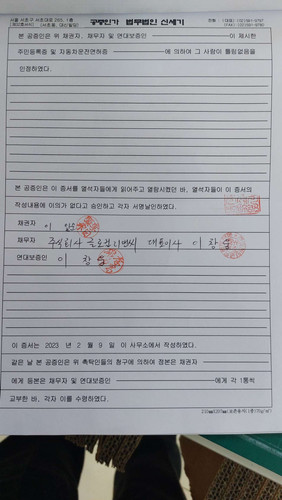 서울 서초구 서초대로 250, 1층
공증인가 법무법인 신세기
본 공증인은 위 채권자, 채무자 및 연대보증인 이 제시한
주민등록증 및 자동차운전면허증 에 의하여 그 사람이 틀림없음을
인정하였다.
본 공증인은 이 증서를 열석자들에게 읽어주고 열람시켰던 바, 열석자들이 이 증서의
작성내용에 이의가 없다고 승인하고 각자 서명날인하였다.
채권자
이
채무자
주식회사 글로컴니앤씨 대표이사 이 창
연대보증인
이 창
이 증서는 2023 년 2 월 9 일 이 사무소에서 작성하였다.
같은 날 본 공증인은 위 촉탁인들의 청구에 의하여 정본은 채권자
에게 등본은 채무자 및 연대보증인 에게 각 1통씩
교부한 바, 각자 이를 수령하였다.